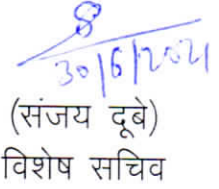 30/6/2021
(संजय दूबे)
विशेष सचिव